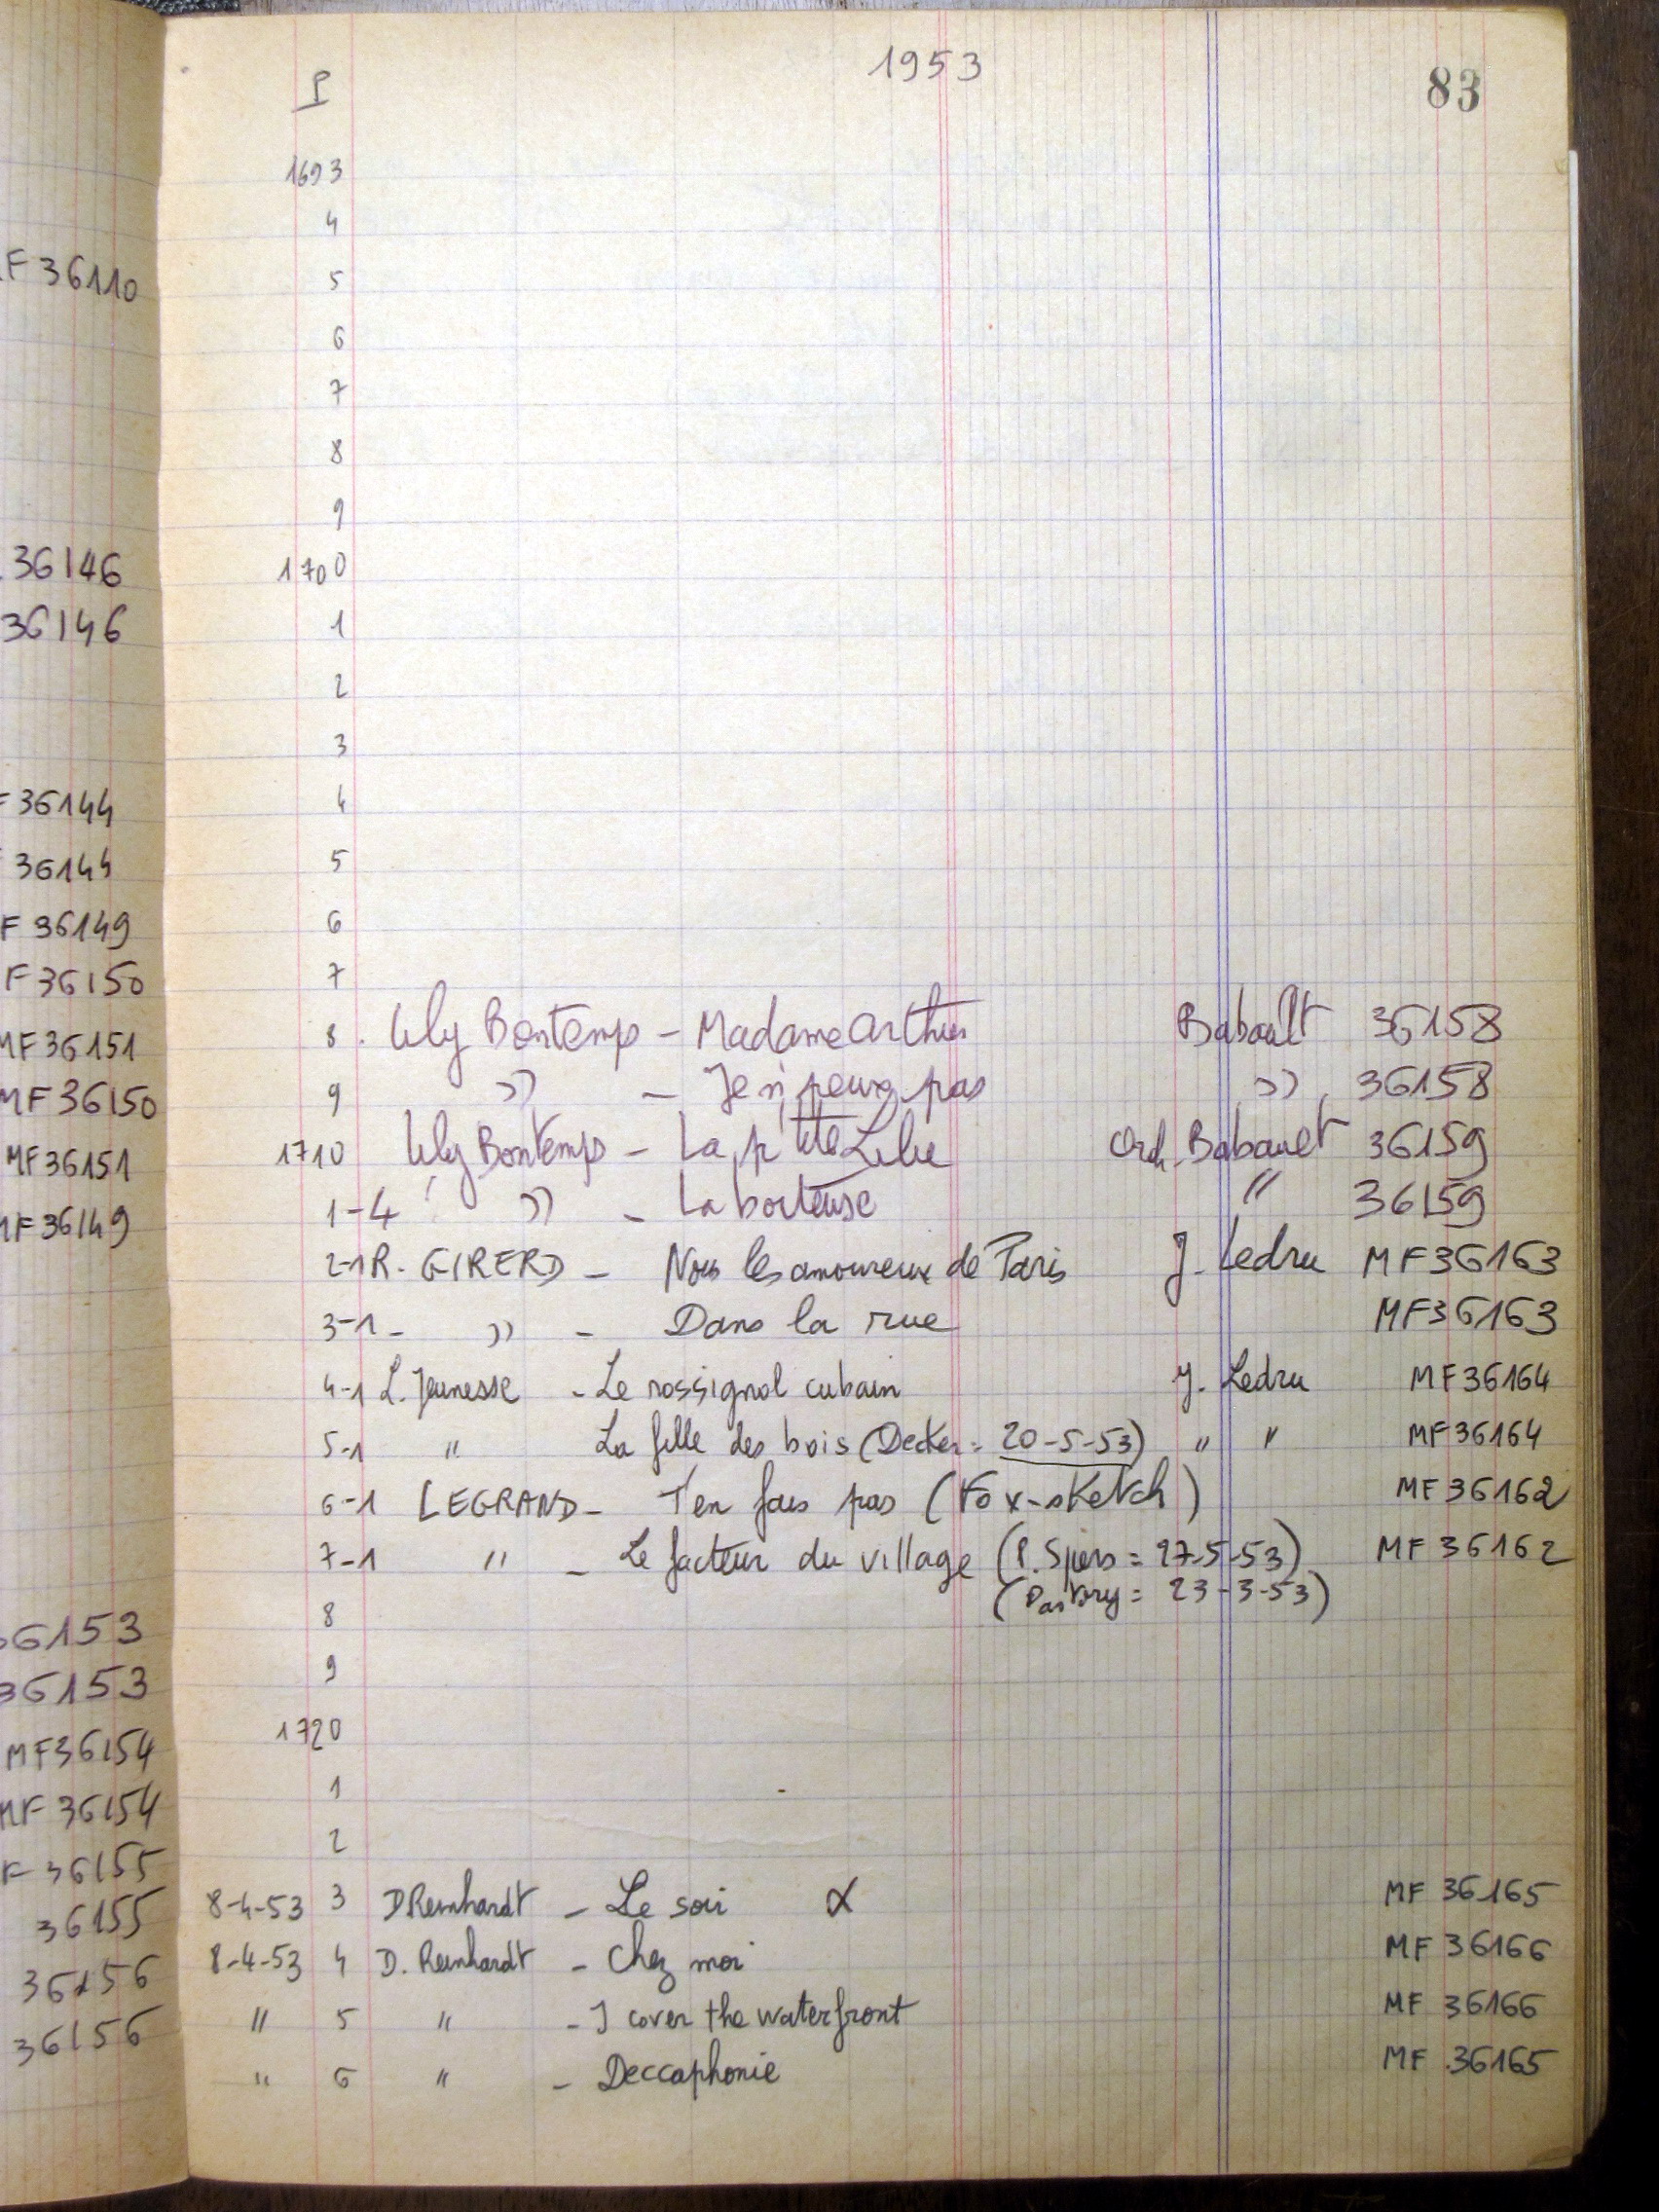 F 36110
36146
36146
F 36144
36144
F 36149
F 36150
MF 36151
MF 36150
MF 36151
MF 36149
36153
36153
MF 36154
MF 36154
F 36155
36155
36156
36156
1953
83
P
1693
4
5
6
7
8
9
1700
1
2
3
4
5
6
7
8 . Lily Bontemps - Madame Arthur Babault 36158
9 " - Je n'peux pas " 36158
1710 Lily Bontemps - La p'tite Lilie Orch. Babault 36159
1-4 " - La boiteuse " 36159
2-1 R. GIRERD - Nous les amoureux de Paris J. Ledru MF 36163
3-1 - " - Dans la rue MF 36163
4-1 L. Jeunesse - Le rossignol cubain J. Ledru MF 36164
5-1 " La fille des bois (Decker = 20-5-53) " " MF 36164
6-1 LEGRAND - T'en fais pas (Fox-sketch) MF 36162
7-1 " - Le facteur du village (P. Spiers = 27-5-53) MF 36162
(Pastory = 23-3-53)
8
9
1720
1
2
8-4-53 3 D Reinhardt - Le soir α MF 36165
8-4-53 4 D. Reinhardt - Chez moi MF 36166
" 5 " - I cover the waterfront MF 36166
" 6 " - Deccaphonie MF 36165